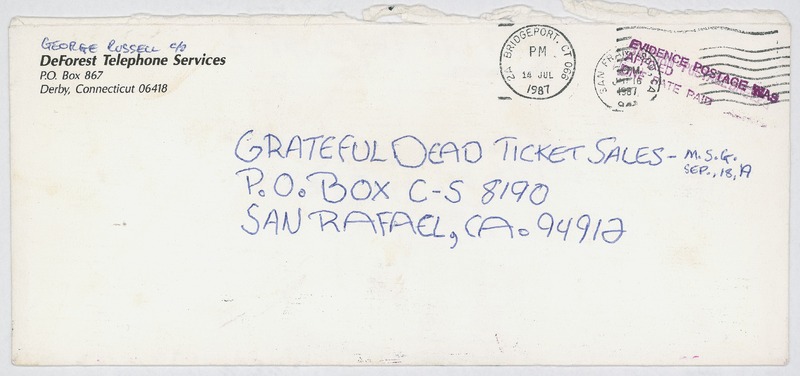 GEORGE RUSSELL c/o
DeForest Telephone Services
P.O. Box 867
Derby, Connecticut 06418
BRIDGEPORT, CT 066
PM
1987
SAN
CA
1987
EVIDENCE POSTAGE WAS
DATE PAID
GRATEFUL DEAD TICKET SALES - M.S.G.
SEP., 18, 19
P.O. BOX C-S 8190
SAN RAFAEL, CA. 94912